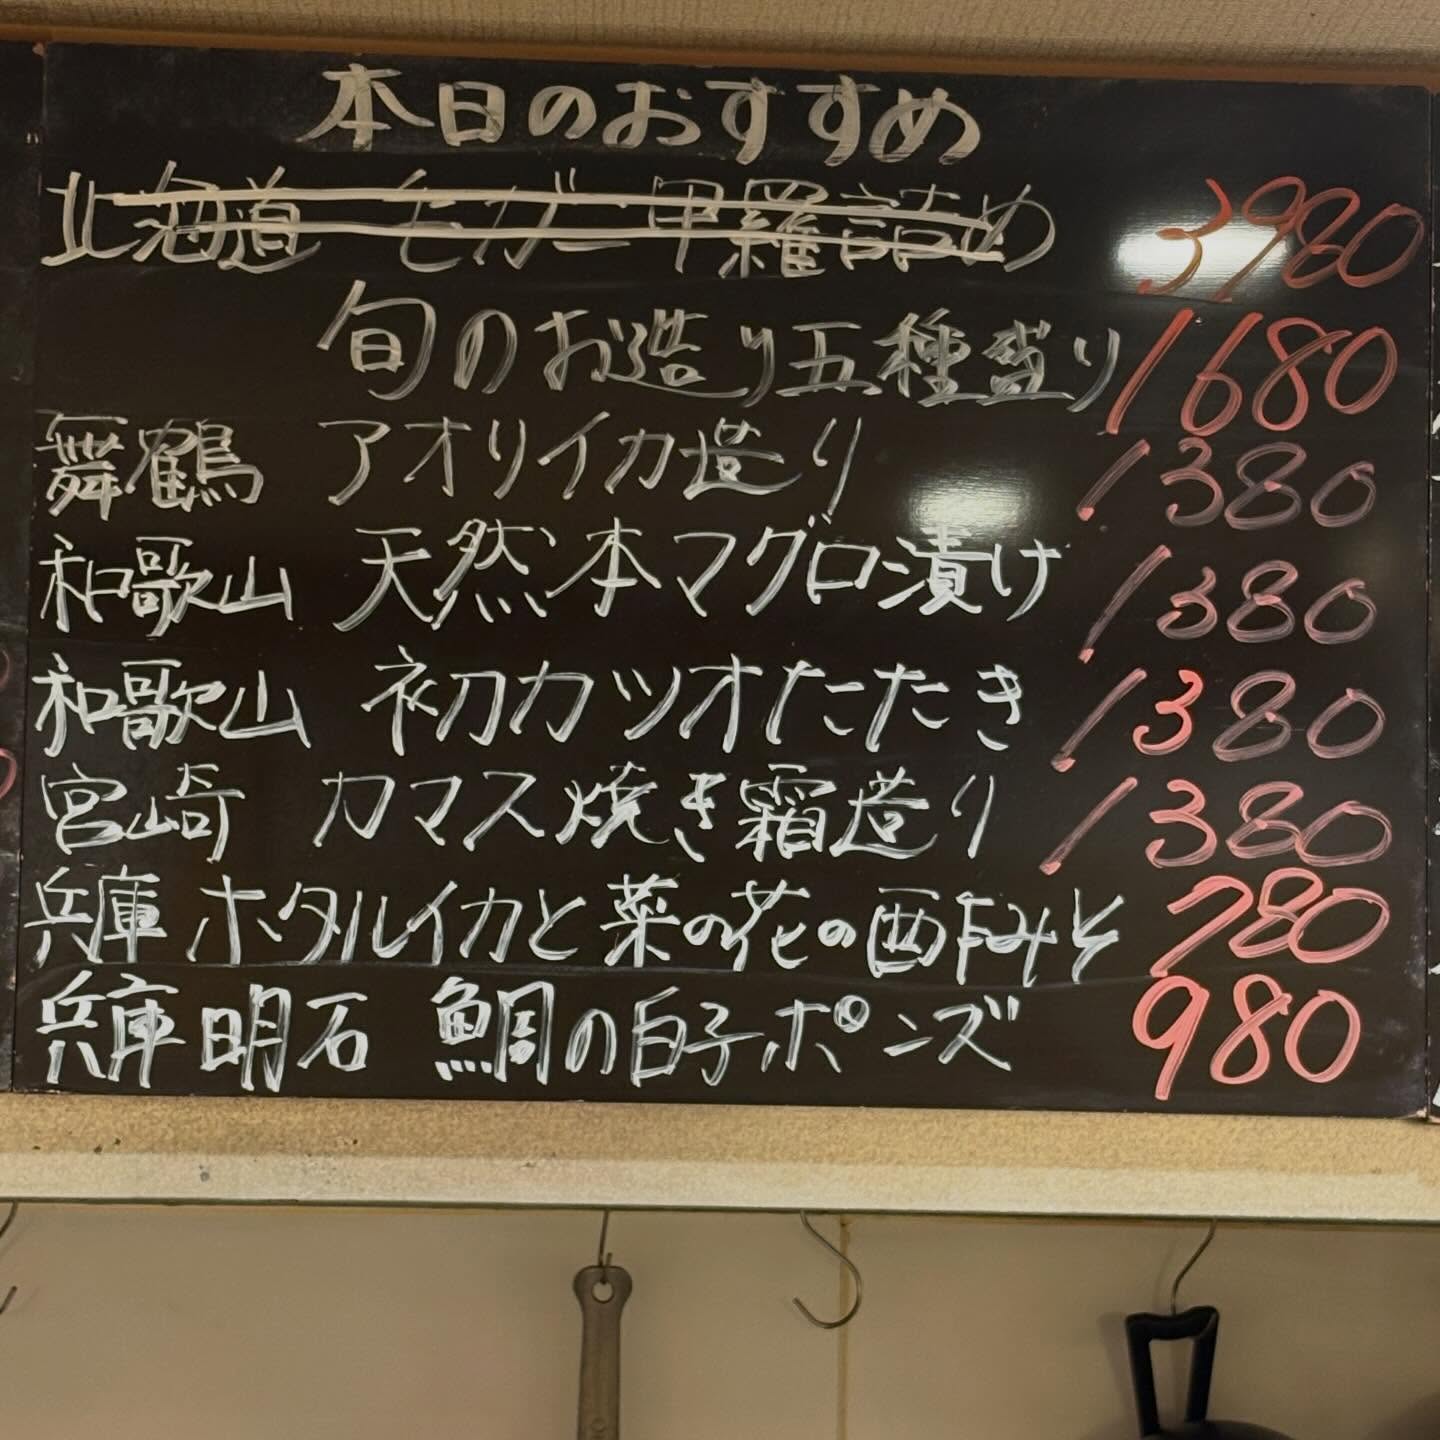 本日のおすすめ
北海道 モガニ甲羅詰め 3980
旬のお造り五種盛り 1680
舞鶴 アオリイカ造り 1380
和歌山 天然本マグロ漬け 1380
和歌山 初カツオたたき 1380
宮崎 カマス焼き霜造り 1380
兵庫 ホタルイカと菜の花の酉乍みそ 780
兵庫明石 鯛の白子ポンズ 980